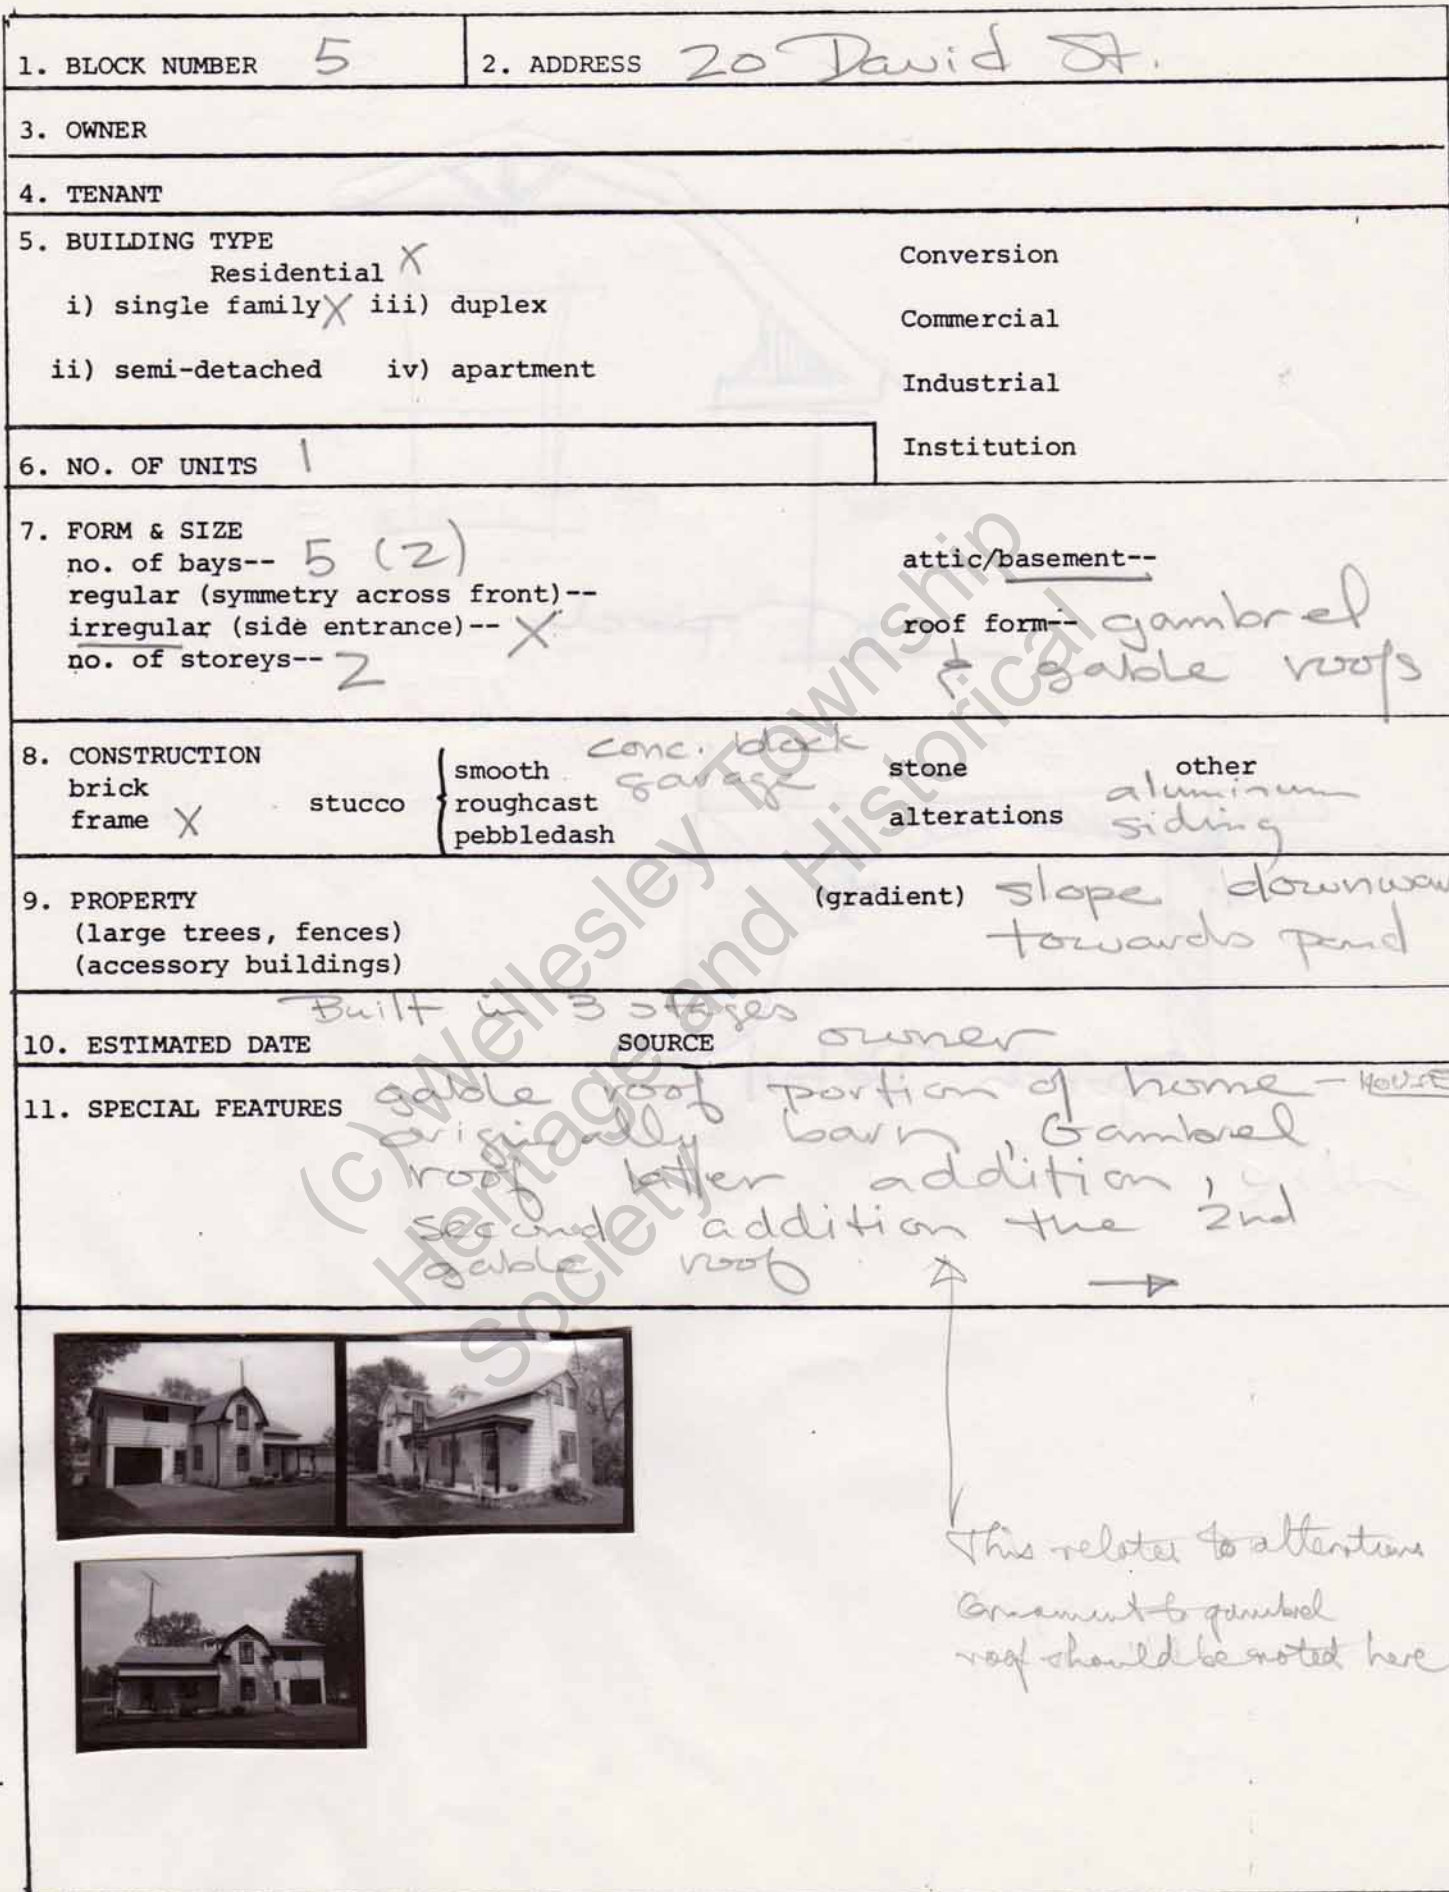 1. BLOCK NUMBER 5 2. ADDRESS 20 David St.
3. OWNER
4. TENANT
5. BUILDING TYPE
Residential X
i) single family X iii) duplex
ii) semi-detached iv) apartment
Conversion
Commercial
Industrial
Institution
6. NO. OF UNITS 1
7. FORM & SIZE
no. of bays-- 5 (2)
regular (symmetry across front)--
irregular (side entrance)-- X
no. of storeys-- 2
attic/basement--
roof form-- gambrel
& gable roofs
8. CONSTRUCTION
brick
frame X
stucco
smooth
roughcast
pebbledash
conc. block
garage
stone
alterations
other
aluminum
siding
9. PROPERTY
(large trees, fences)
(accessory buildings)
(gradient) slope downwar
towards pond
Built in 3 stages
10. ESTIMATED DATE SOURCE owner
11. SPECIAL FEATURES gable roof portion of home - HOUSE
originally barn, Gambrel
roof latter addition,
second addition the 2nd
gable roof
This relates to alterations
Ornament to gambrel
roof should be noted here
(c) Wellesley Township
Heritage and Historical
Society